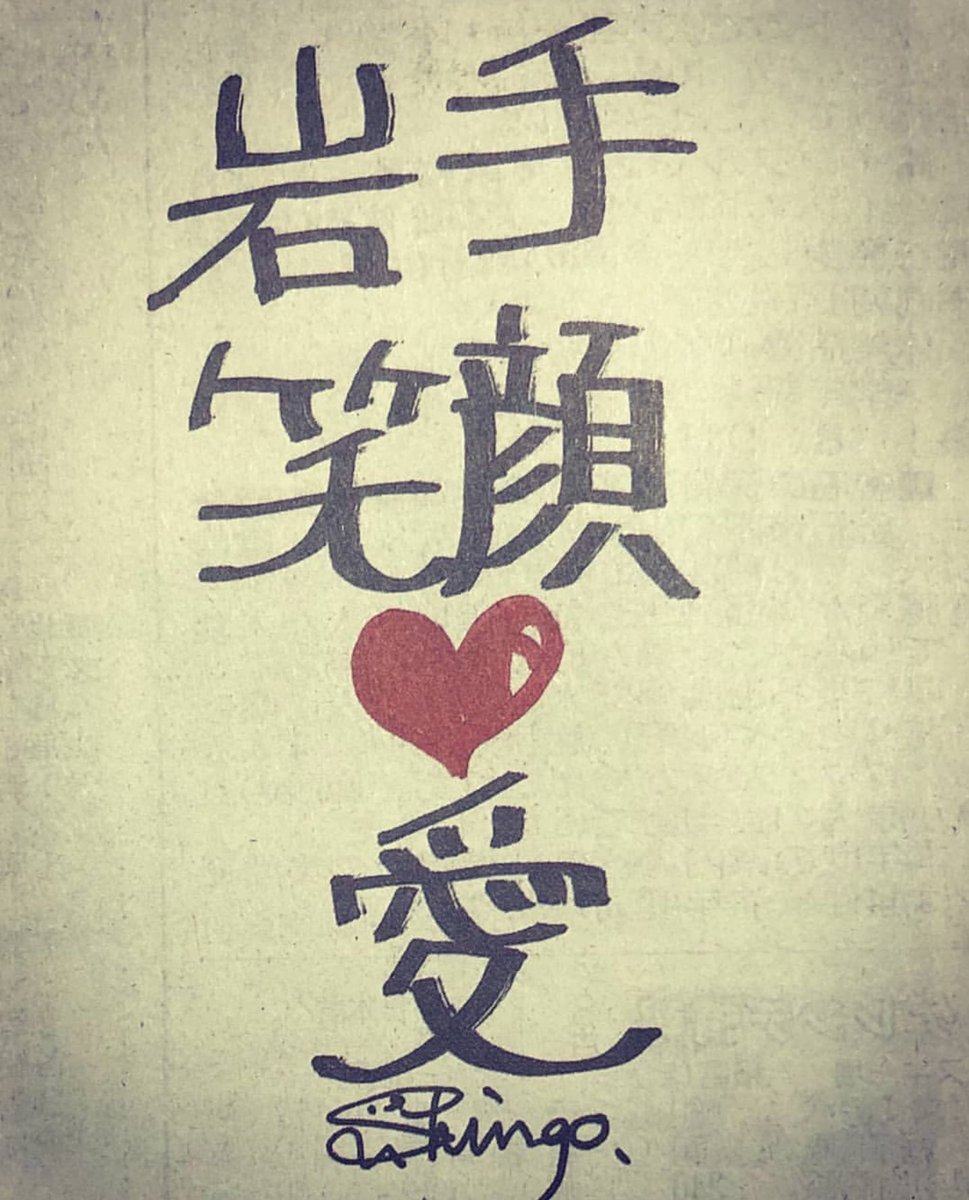 岩手
笑顔
愛
Shingo.